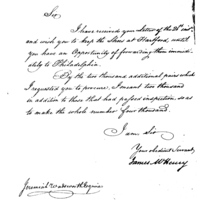 Sir
I have received your letter of the 21st inst.
and wish you to keep the Shoes at Hartford, until
you have an Opportunity of forwarding them immed-
iately to Philadelphia.
By the two thousand additional pairs which
I requested you to procure, I meant two thousand
in addition to those that had passed inspection, so as
to make the whole number four thousand.
I am Sir
Your Obedient Servant,
James McHenry
Jeremiah Wadsworth Esquire